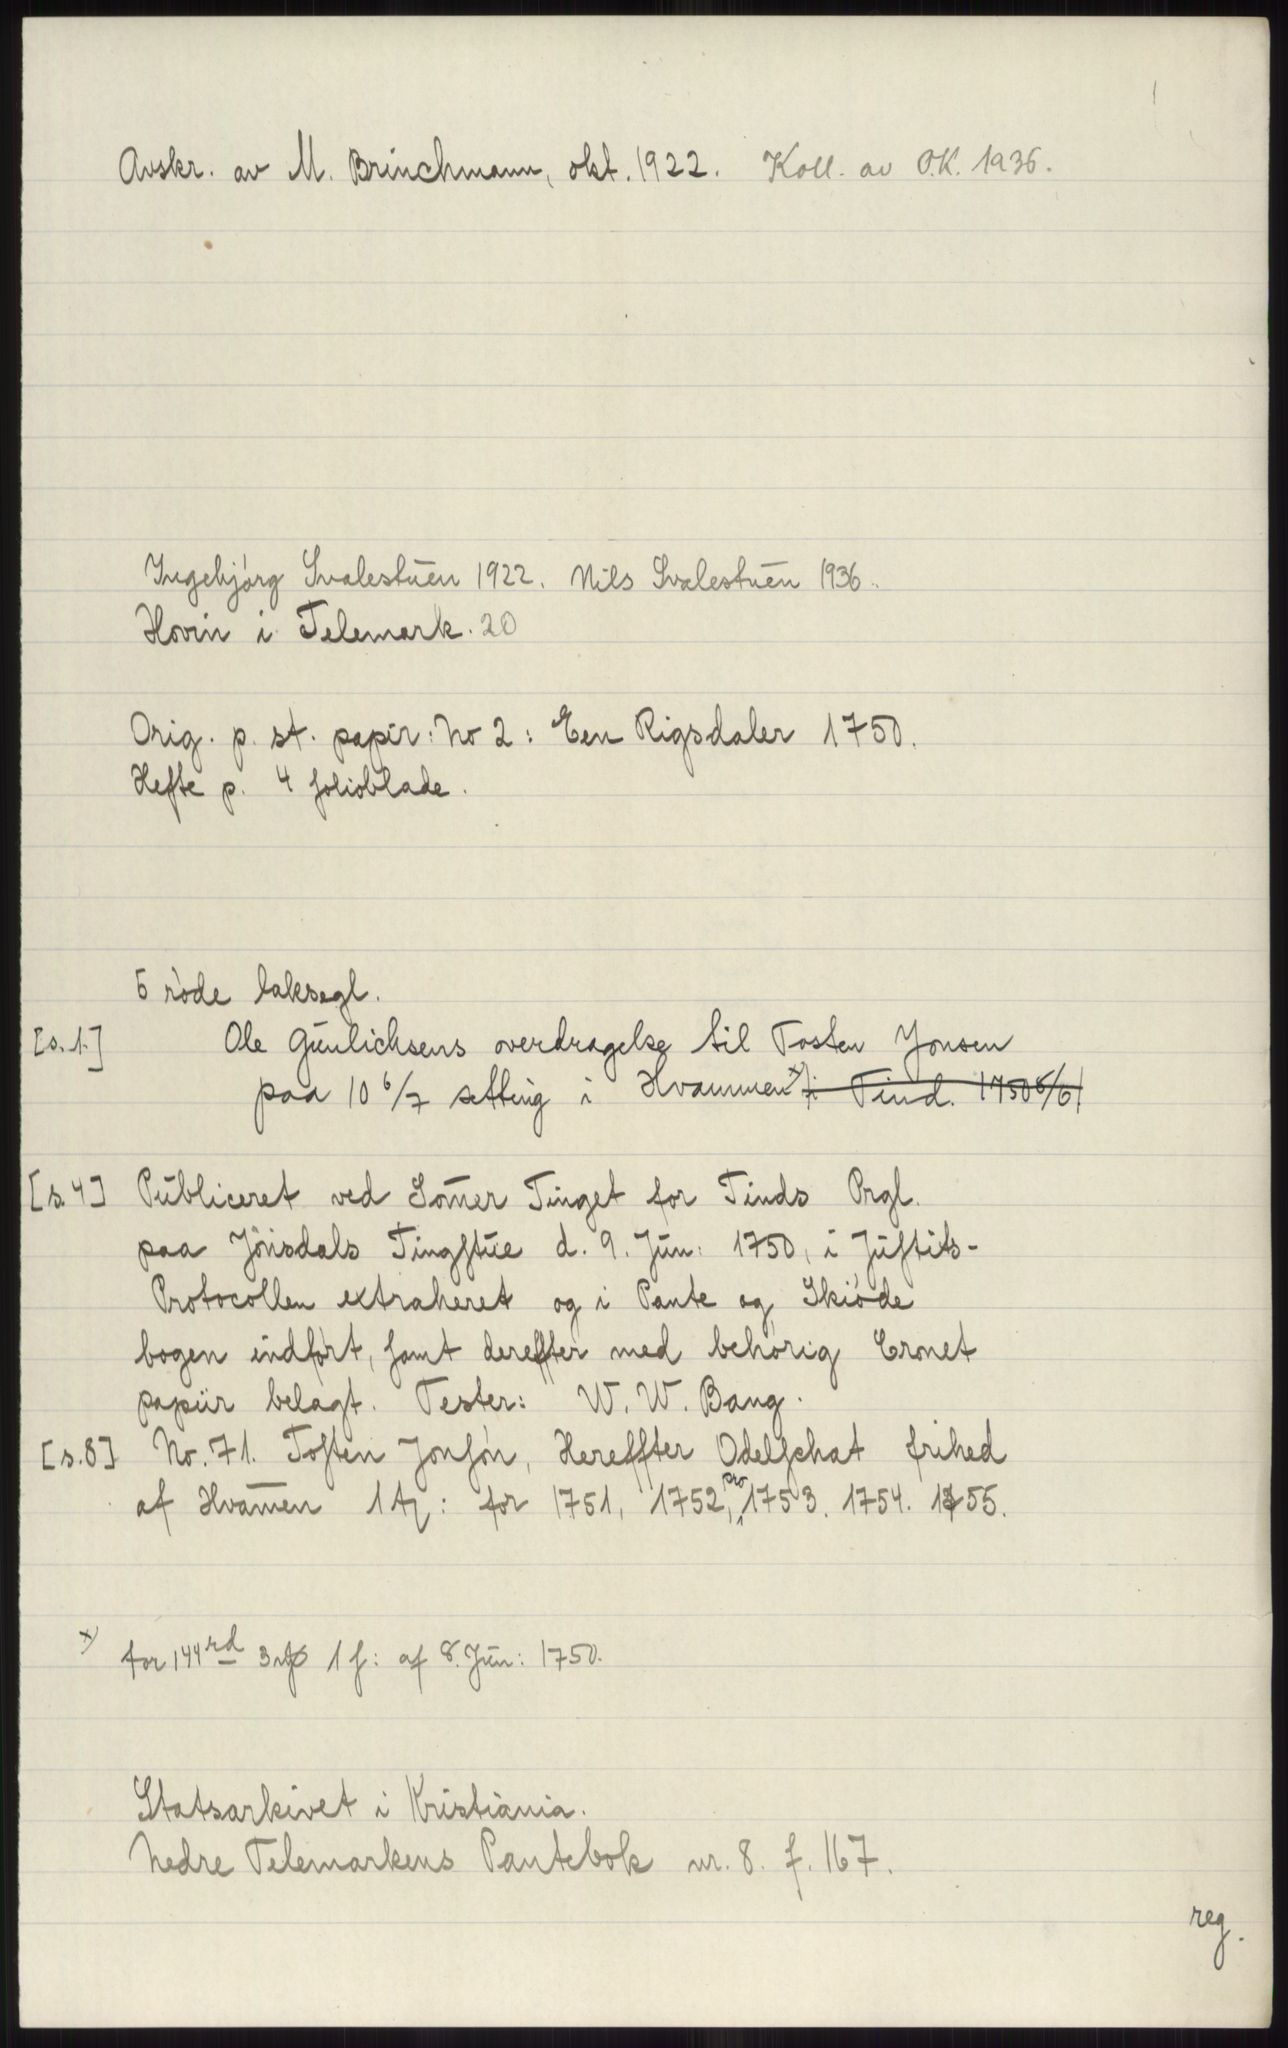 Avskr. av M. Brinchmann, okt. 1922. Koll. av O.K. 1936.
Ingebjórg Svalestuen 1922. Nils Svalestuen 1936.
Hovin i Telemark. 20
Orig. p. st. papir: No 2: Een Rigsdaler 1750.
Hefte p. 4 folioblade.
5 røde laksegl.
[s. 1.] Ole Gunlichsens overdragelse til Tosten Jonsen
paa 10 6/7 setting i Hvammen x) i Tind. 1750 8/6
[s. 4] Publiceret ved Som̄er Tinget for Tinds Prgl.
paa Jönsdals Tingstue d. 9. Jun: 1750, i Justits-
Protocollen extraheret og i Pante og Skiøde
bogen indført, samt dereffter med behørig Cronet
papiir belagt. Tester: W. W. Bang.
[s. 8] No. 71. Tosten Jonsøn, Hereffter Odelschat frihed
af Hvam̄en for 1751, 1752, pro 1753. 1754. 1755.
x) for 144 rd 3 1 s: af 8. Jun: 1750.
Statsarkivet i Kristiania.
Nedre Telemarkens Pantebok nr. 8. f. 167.
reg.